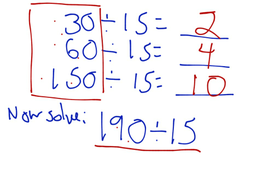 30 ÷ 15 = 2
60 ÷ 15 = 4
150 ÷ 15 = 10
Now solve: 190 ÷ 15